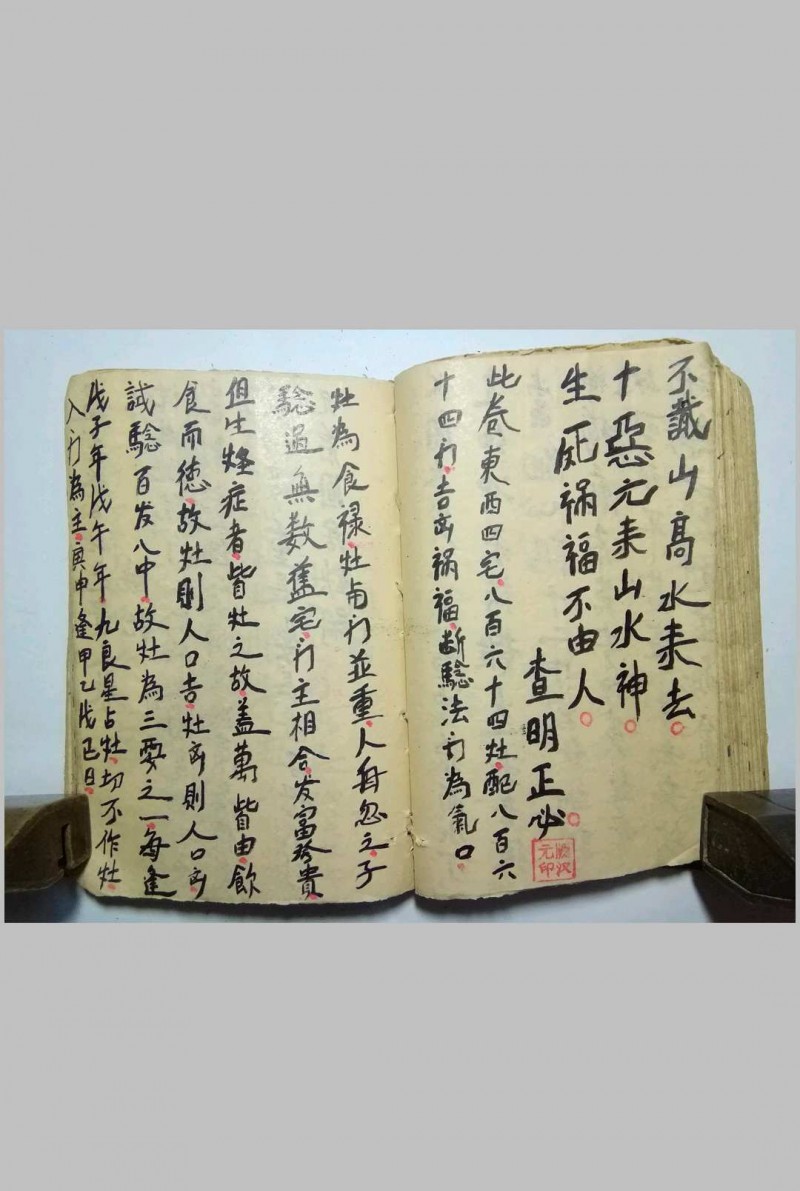 不識山高水来去
十惡元来山水神
生死祸福不由人
查明正必
此卷東西四宅八百六十四灶配八百六
十四门吉凶祸福断騐法门為氣口
灶為食禄灶与门並重人每忽之予
騐過無数舊宅门主相合发富發貴
但生怪症者皆灶之故盖萬皆由飲
食而徳故灶則人口吉灶凶則人口凶
試騐百发八中故灶為三要之一每逢
戊子年戊午年九良星占灶切不作灶
入门為主庚申逢甲乙戊己日